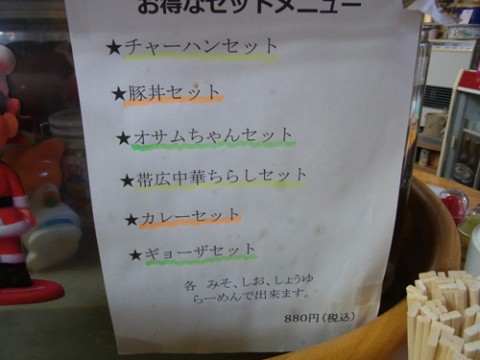 お得なセットメニュー
★チャーハンセット
★豚丼セット
★オサムちゃんセット
★帯広中華ちらしセット
★カレーセット
★ギョーザセット
各 みそ、しお、しょうゆ
らーめんで出来ます。
880円(税込)